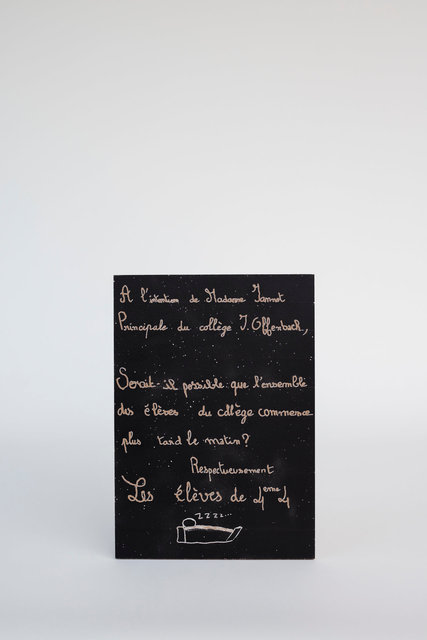 A l'intention de Madame Jannot
Principale du collège J. Offenbach,
Serait-il possible que l'ensemble
des élèves du collège commence
plus tard le matin?
Respectueusement
Les élèves de 4eme4
zzzz...